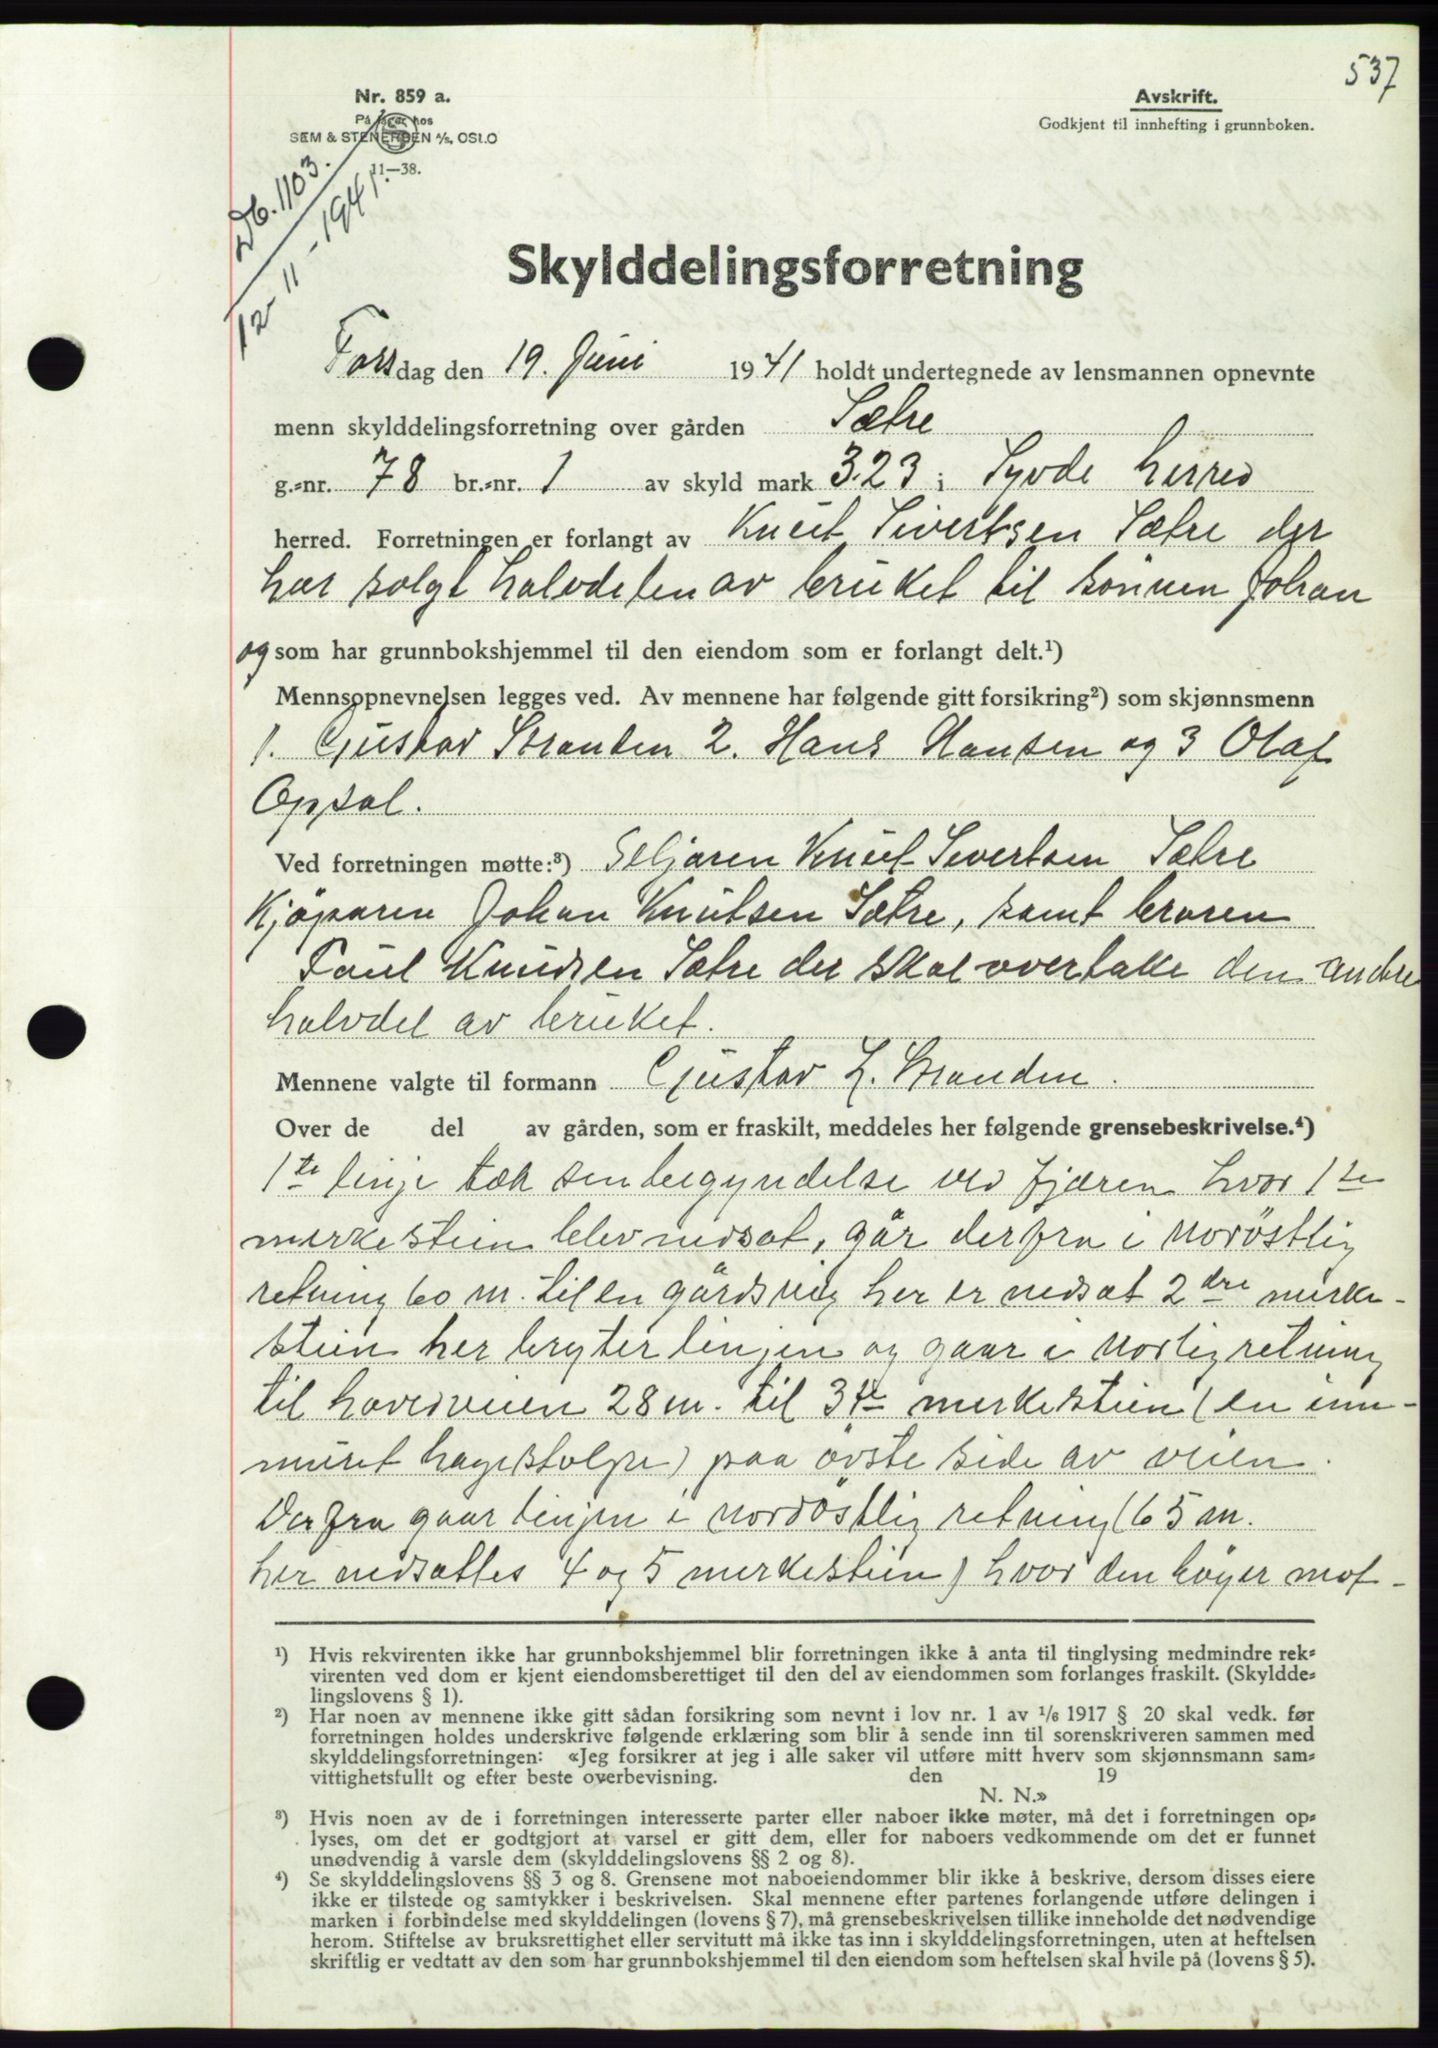 537
Nr. 859 a.
På lager hos
SEM & STENERSEN A/S, OSLO
11—38.
Avskrift.
Godkjent til innhefting i grunnboken.
Db. 1103.
12-11-1941.
Skylddelingsforretning
Torsdag den 19. Juni 1941 holdt undertegnede av lensmannen opnevnte
menn skylddelingsforretning over gården Sætre
g.=nr. 78 br.=nr. 1 av skyld mark 3.23 i Syvde herred
herred. Forretningen er forlangt av Knut Sivertsen Sætre der
har solgt halvdelen av bruket til sönnen Johan
og som har grunnbokshjemmel til den eiendom som er forlangt delt.¹)
Mennsopnevnelsen legges ved. Av mennene har følgende gitt forsikring²) som skjønnsmenn
1. Gustav Branden 2. Hans Hansen og 3 Olaf
Opsal.
Ved forretningen møtte:³) Seljaren Knut Sivertsen Sætre
Kjöparen Johan Knutsen Sætre, samt broren
Paul Knudsen Sætre der skal overtakke den andre
halvdel av bruket.
Mennene valgte til formann Gustav L. Branden.
Over de del av gården, som er fraskilt, meddeles her følgende grensebeskrivelse.⁴)
1te linje tæk sin begyndelse ved fjæren hvor 1te
merkestein blev nedsat, går derfra i nordöstlig
retning 60 m. til en gårdsvig her er nedsat 2dre merke-
stein her bryter linjen og gaar i nordlig retning
til hovedveien 28 m. til 3de merkestein (en inn-
muret hagestolpe) paa övste side av veien.
Derfra gaar linjen i nordöstlig retning (65 m.
her nedsattes 4 og 5 merkestein) hvor den böyer mot-
¹) Hvis rekvirenten ikke har grunnbokshjemmel blir forretningen ikke å anta til tinglysing medmindre rek=
virenten ved dom er kjent eiendomsberettiget til den del av eiendommen som forlanges fraskilt. (Skyldde=
lingslovens § 1).
²) Har noen av mennene ikke gitt sådan forsikring som nevnt i lov nr. 1 av ¹/₆ 1917 § 20 skal vedk. før
forretningen holdes underskrive følgende erklæring som blir å sende inn til sorenskriveren sammen med
skylddelingsforretningen: «Jeg forsikrer at jeg i alle saker vil utføre mitt hverv som skjønnsmann sam=
vittighetsfullt og efter beste overbevisning. den 19
N. N.»
³) Hvis noen av de i forretningen interesserte parter eller naboer ikke møter, må det i forretningen op=
lyses, om det er godtgjort at varsel er gitt dem, eller for naboers vedkommende om det er funnet
unødvendig å varsle dem (skylddelingslovens §§ 2 og 8).
⁴) Se skylddelingslovens §§ 3 og 8. Grensene mot naboeiendommer blir ikke å beskrive, dersom disses eiere
ikke er tilstede og samtykker i beskrivelsen. Skal mennene efter partenes forlangende utføre delingen i
marken i forbindelse med skylddelingen (lovens § 7), må grensebeskrivelsen tillike inneholde det nødvendige
herom. Stiftelse av bruksrettighet eller servitutt må ikke tas inn i skylddelingsforretningen, uten at heftelsen
skriftlig er vedtatt av den som har grunnbokshjemmel til den eiendom som heftelsen skal hvile på (lovens § 5).